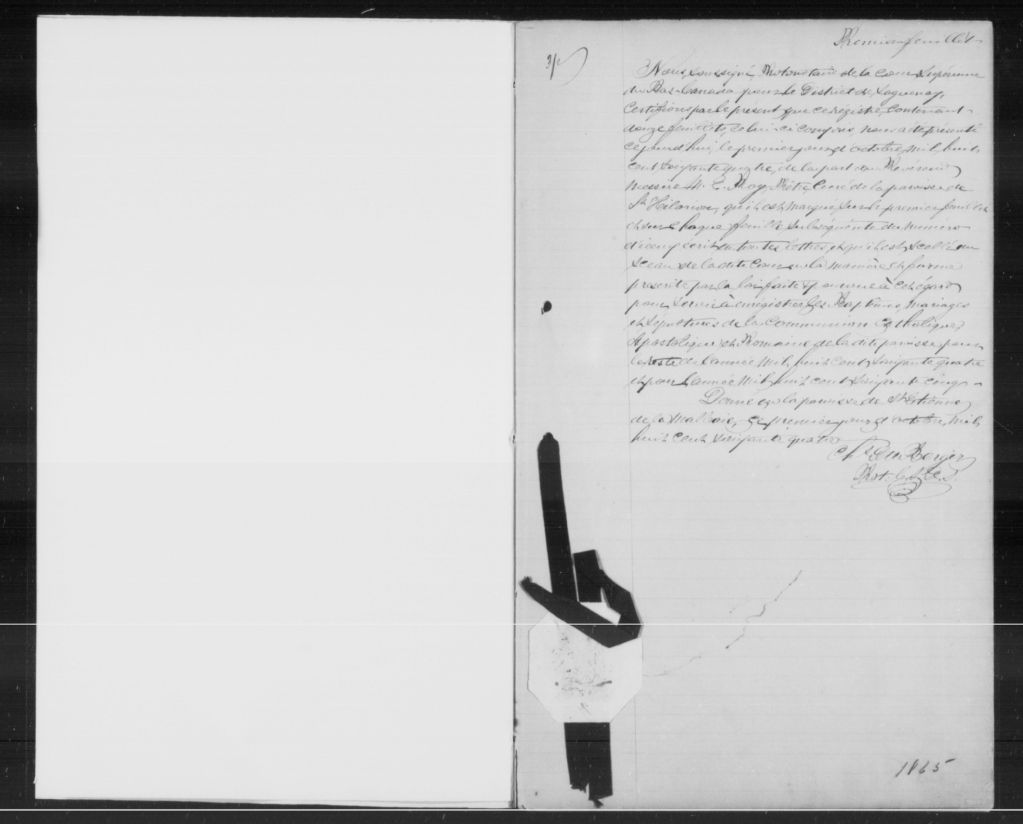 Premier feuillet
Nous, soussigné, Protonotaire de la Cour Supérieure
du Bas-Canada pour le District de Saguenay,
Certifions par le présent que ce registre, contenant
douze feuillets, celui-ci compris, nous a été présenté
ce jourd'hui, le premier jour d'octobre, mil huit
cent soixante quatre, de la part du Révérend
Messire M. E. Roy, Ptre, Curé de la paroisse de
St Hilarion, qu'il est marqué sur le premier feuillet
et sur chaque feuille subséquente du numéro
d'icelui écrit en toutes lettres, et qu'il est scellé du
sceau de la dite Cour en la manière et forme
prescrite par la loi faite et pourvue à cet égard
pour servir à enregistrer les Baptêmes, Mariages
et Sépultures de la Communion Catholique,
Apostolique et Romaine de la dite paroisse pour
le reste de l'année mil huit cent soixante quatre
et pour l'année mil huit cent soixante cinq.
Donné en la paroisse de St Etienne
de la Malbaie, ce premier jour d'octobre, mil
huit cent soixante quatre
Prot. C. S. C. S.
1865